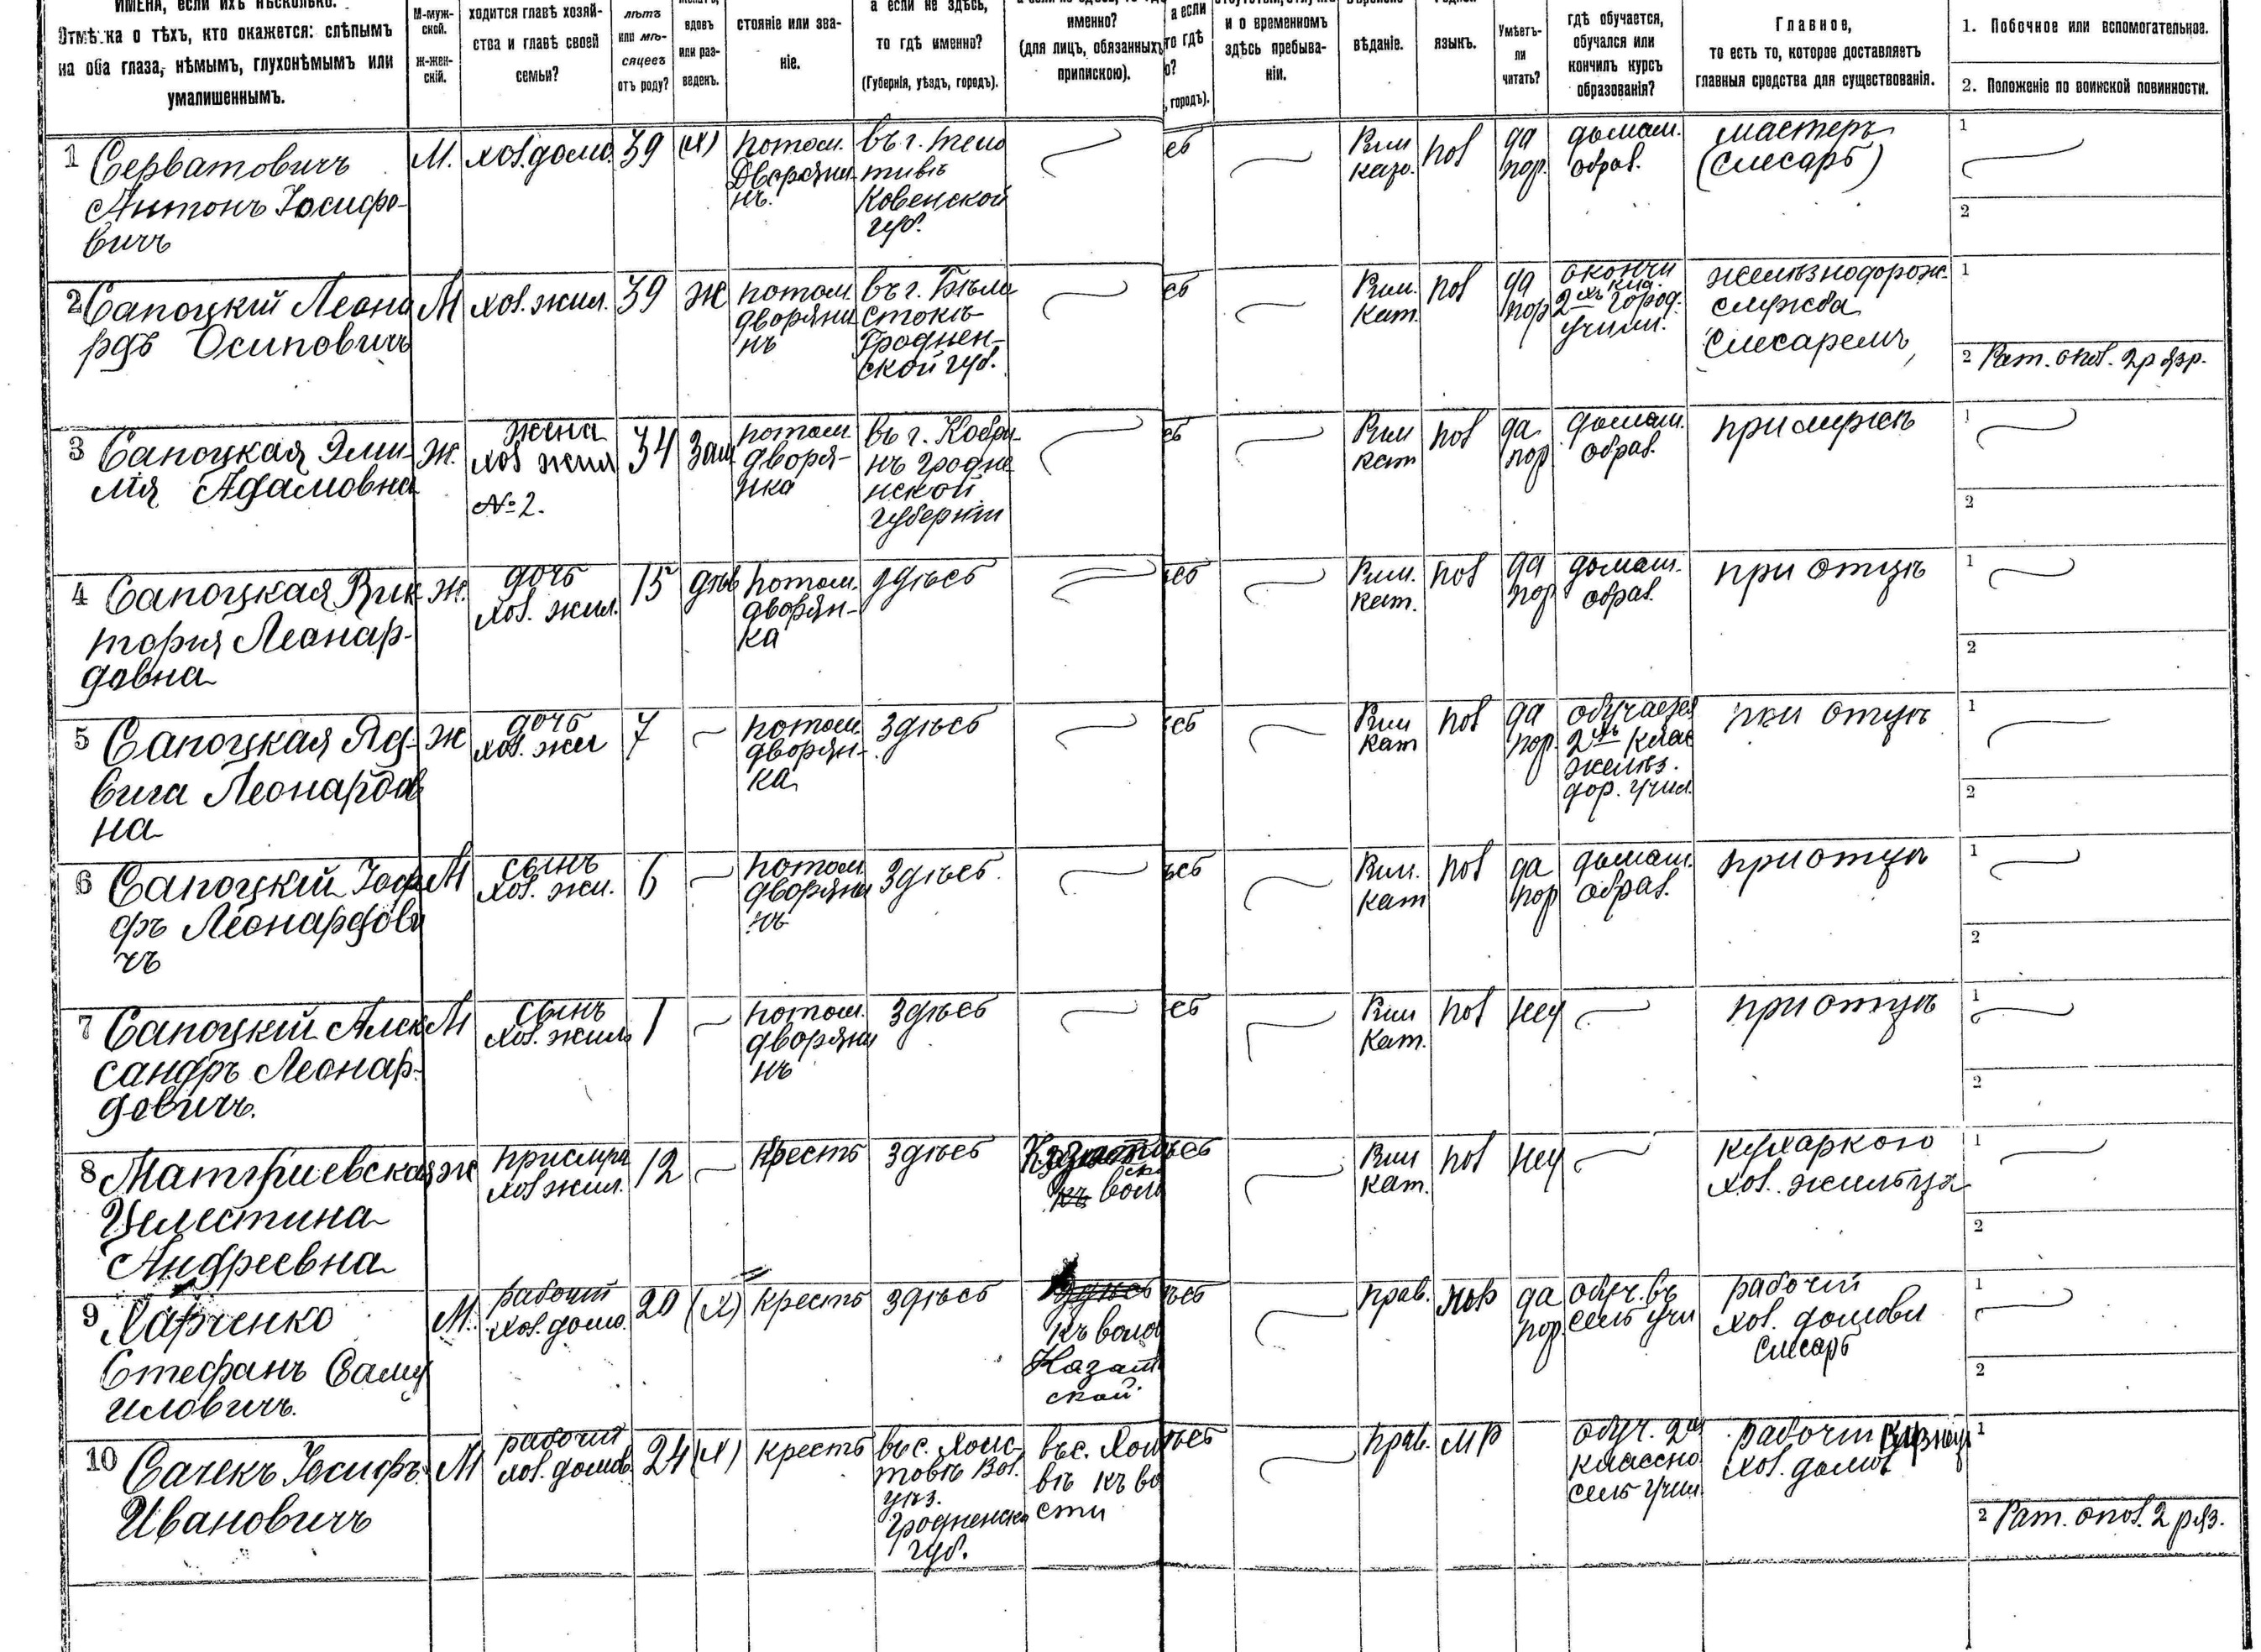 ИМЕНА, если ихъ нѣсколько.
Отмѣтка о тѣхъ, кто окажется: слѣпымъ
на оба глаза, нѣмымъ, глухонѣмымъ или
умалишеннымъ.
М-муж-
ской.
Ж-жен-
скій.
ходится главѣ хозяй-
ства и главѣ своей
семьи?
лѣтъ
или мѣ-
сяцевъ
отъ роду?
вдовъ
или раз-
веденъ.
стояніе или зва-
ніе.
а если не здѣсь,
то гдѣ именно?
(Губернія, уѣздъ, городъ).
именно?
(для лицъ, обязанныхъ
припискою).
а если
то гдѣ
о?
, городъ).
и о временномъ
здѣсь пребыва-
ніи.
вѣданіе.
языкъ.
Умѣетъ-
ли
читать?
гдѣ обучается,
обучался или
кончилъ курсъ
образованія?
Главное,
то есть то, которое доставляетъ
главныя средства для существованія.
1. Побочное или вспомогательное.
2. Положеніе по воинской повинности.
1 Серватовичъ
Антонъ Іосифо-
вичъ
М. хоз. домо. 39 (Х)
потом.
Дворяни
нъ.
въ г. Тель
Ковенской
губ.
Рим
пол
да
пор.
домаш.
образ.
мастеръ
(слесарь)
1
2
2 Сапоцкій Леона
рдъ Осиповичъ
М хоз. жил. 39 Ж
потом.
дворяни
нъ
въ г. Бѣло
стокъ
Гроднен-
ской губ.
Рим.
Кат.
пол
да
пор
окончи
2хъ кла.
город.
учили.
желѣзнодорож.
служба
слесаремъ
1
2 Рат. опол. 2 разр.
3 Сапоцкая Эми-
лія Адамовна
Ж.
жена
хоз жил
№ 2.
34 Зам
потом
дворя-
нка
въ г. Кобри
нъ Гродне
нской
губерніи
Рим
кат
пол
да
пор
домаш.
образ.
при мужѣ
1
2
4 Сапоцкая Вик
торія Леонар-
довна
Ж.
дочь
хоз. жил.
15 дѣв
потом.
дворян-
ка
здѣсь
Рим.
кат.
пол
да
пор
домаш.
образ.
при отцѣ
1
2
5 Сапоцкая Яд-
вига Леонардов
на
Ж
дочь
хоз. жил
7
потом
дворян-
ка
здѣсь
Рим
кат
пол
да
пор.
обучается
2хъ клас
желѣз.
дор. учил.
при отцѣ
1
2
6 Сапоцкій Іоси
фъ Леонардови
чъ
М
сынъ
хоз. жи.
6
потом
дворяни
нъ
здѣсь.
Рим.
кат
пол
да
пор
домаш.
образ.
при отцѣ
1
2
7 Сапоцкій Алек
сандръ Леонар-
довичъ.
М
сынъ
хоз. жиль
1
потом.
дворяни
нъ
здѣсь
Рим
Кат.
пол
неу
при отцѣ
1
2
8
Целестина
Андреевна
ж
прислуга
хоз жил.
12
крестъ
здѣсь
Рим
кат.
пол
неу
кухаркою
хоз. жильца
1
2
9 Харченко
Стефанъ Саму
иловичъ.
М.
рабочій
хоз. домо.
20 (Х) крестъ здѣсь
къ воло
Казат
ской.
прав.
да
пор.
обуч. въ
сель учи
рабочій
хоз. домовл
слесарь
1
2
10 Сачекъ Іосифъ
Ивановичъ
М
рабочій
хоз. домов.
24 (Х) крестъ
уѣз.
Гродненско
губ.
въ с.
вѣ къ во
сти
прав. МР
обуч. 2хъ
классно
сель учил
рабочій
хоз. домов
1
2 Рат. опол. 2 раз.